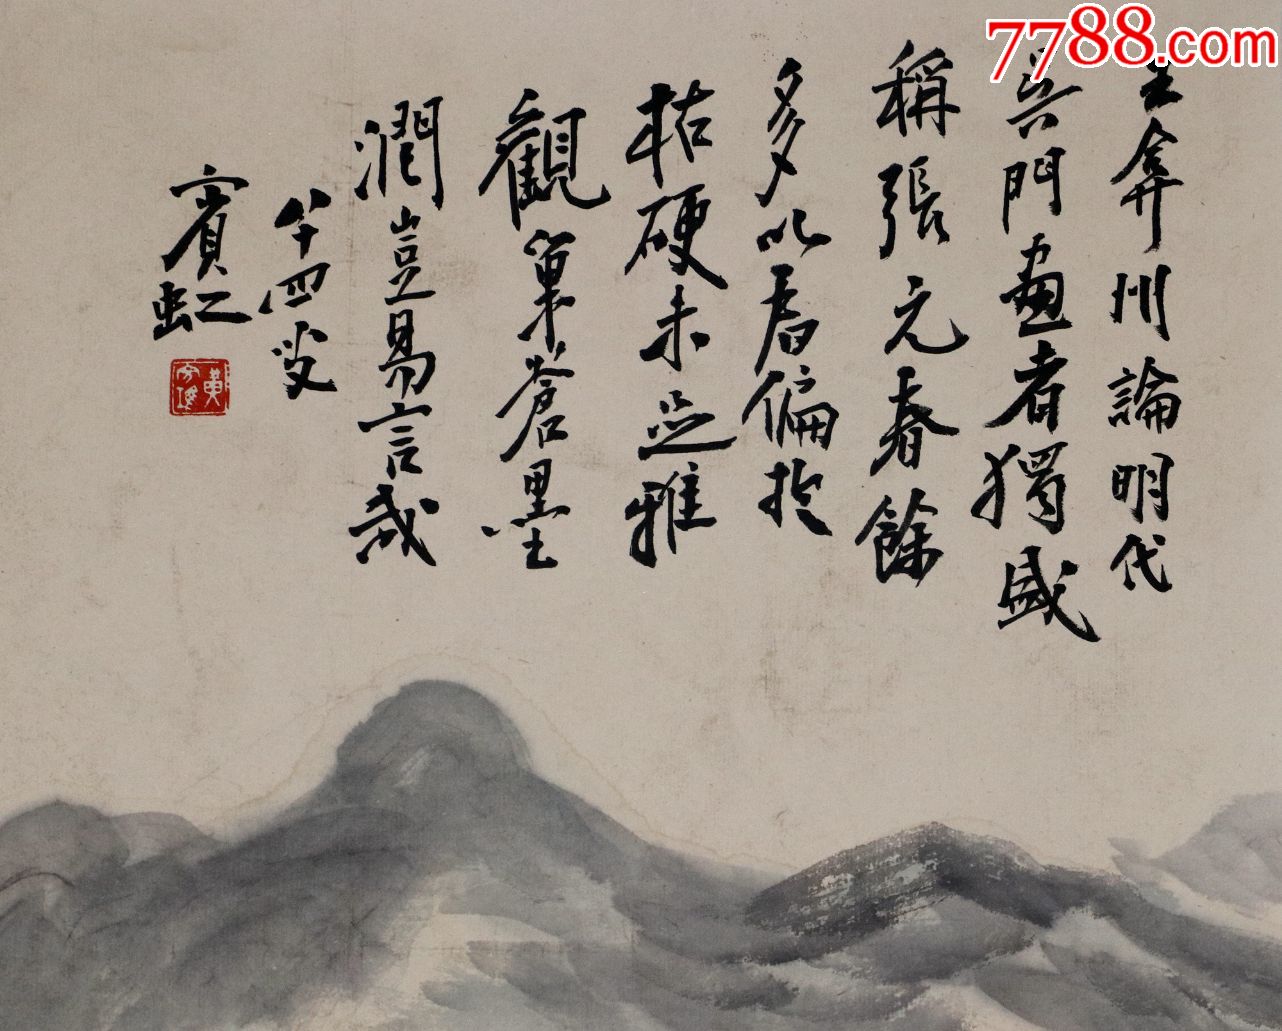 7788.com
王弇州論明代
吴門畫者獨盛
稱張元春餘
多以為偏於
枯硬未足雅
觀筆蒼墨
潤豈易言哉
八十四叟
賓虹
黄賓虹